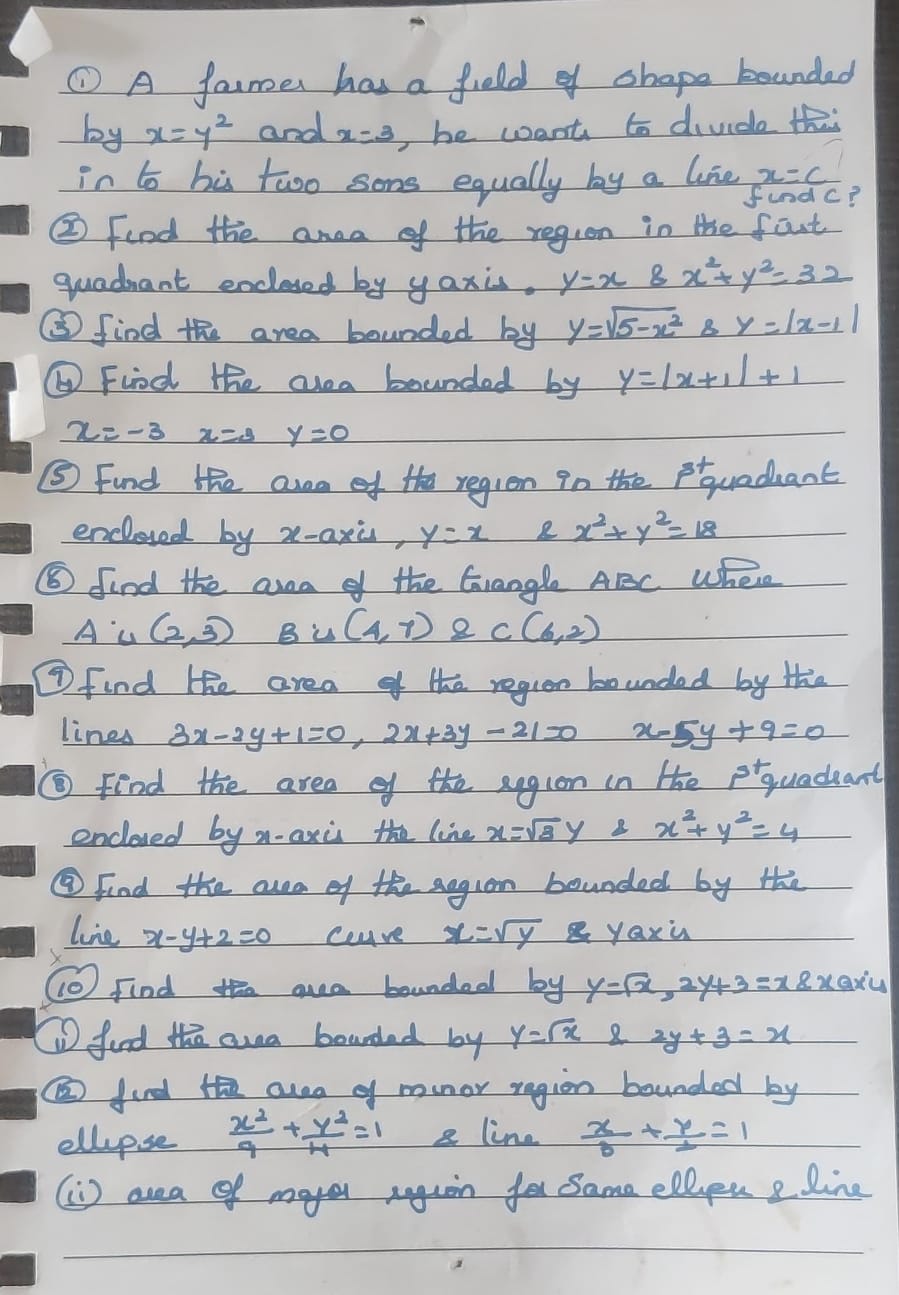 ① A farmer has a field of shape bounded
by x=y² and x=3, he wants to divide this
in to his two sons equally by a line x=c
find c?
② Find the area of the region in the first
quadrant enclosed by y axis. y=x & x²+y²=32
③ find the area bounded by y=√5-x² & y=|x-1|
④ Find the area bounded by y=|x+1|+1
x=-3 x=3 y=0
⑤ Find the area of the region in the 1st quadrant
enclosed by x-axis, y=x & x²+y²=18
⑥ find the area of the triangle ABC where
A is (2,3) B is (4,7) & C(6,2)
⑦ find the area of the region bounded by the
lines 3x-2y+1=0, 2x+3y-21=0 x-5y+9=0
⑧ Find the area of the region in the 1st quadrant
enclosed by x-axis the line x=√3y & x²+y²=4
⑨ Find the area of the region bounded by the
line x-y+2=0 curve x=√y & y axis
⑩ Find the area bounded by y=√x, 2y+3=x & x axis
⑪ find the area bounded by y=√x & 2y+3=x
⑫ find the area of minor region bounded by
ellipse x²/9 + y²/4 =1 & line x/3 + y/2 =1
(ii) area of major region for same ellipse & line